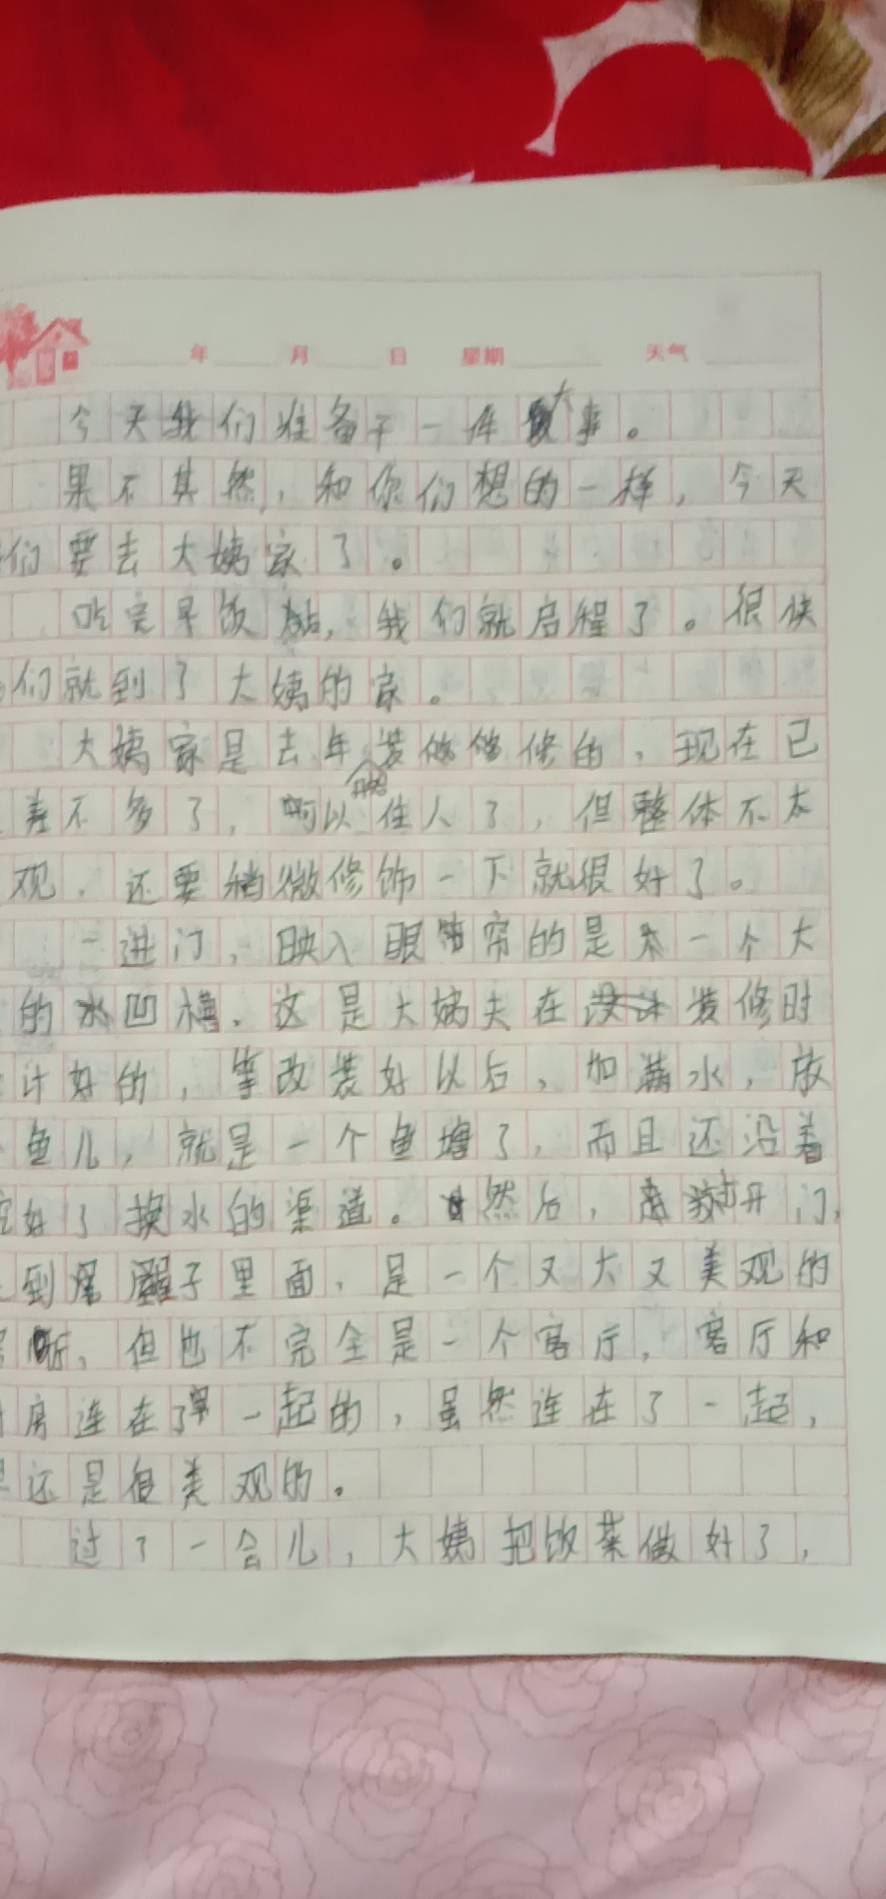 年 月 日 星期 天气
今天我们准备干一件大事。
果不其然，和你们想的一样，今天
们要去大姨家了。
吃完早饭，我们就启程了。很快
们就到了大姨的家。
大姨家是去年装修的，现在已
差不多了，可以住人了，但整体不太
观，还要稍微修饰一下就很好了。
一进门，映入眼帘的是一个大
的凹槽，这是大姨夫在装修时
计好的，等改装好以后，加满水，放
鱼儿，就是一个鱼塘了，而且还沿着
好了换水的渠道。然后，打开门，
到屋子里面，是一个又大又美观的
厅，但也不完全是一个客厅，客厅和
房连在了一起的，虽然连在了一起，
还是很美观的。
过了一会儿，大姨把饭菜做好了，